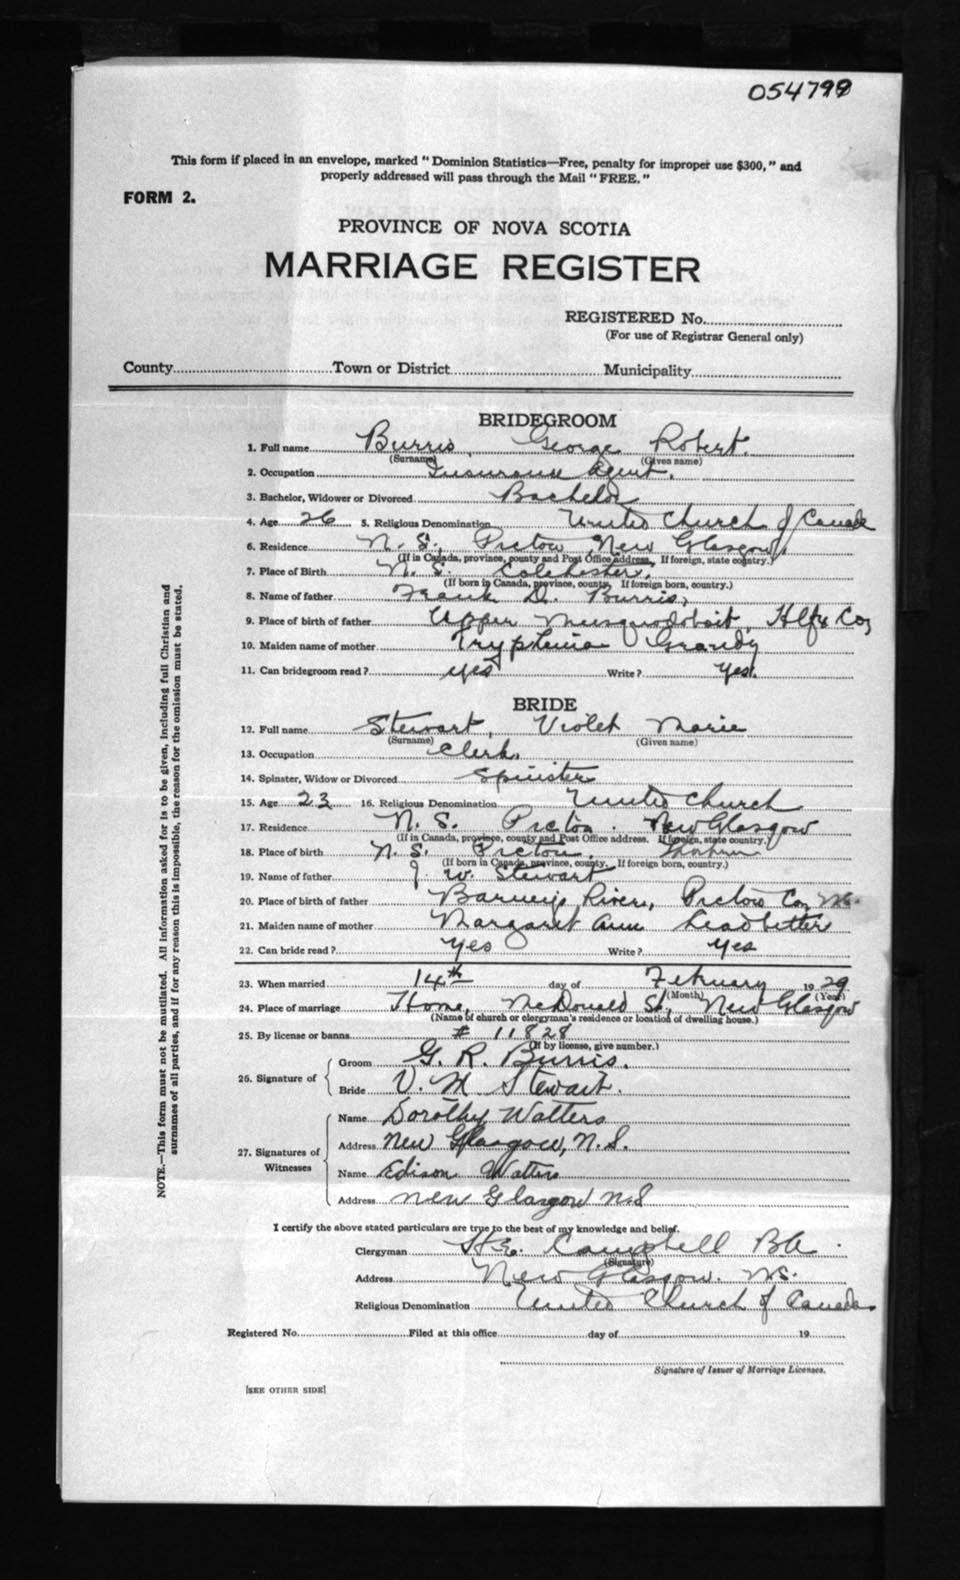 054799
This form if placed in an envelope, marked "Dominion Statistics—Free, penalty for improper use $300," and
properly addressed will pass through the Mail "FREE."
FORM 2.
PROVINCE OF NOVA SCOTIA
MARRIAGE REGISTER
REGISTERED No.
(For use of Registrar General only)
County Town or District Municipality
BRIDEGROOM
1. Full name Burris, George Robert.
(Surname) (Given name)
2. Occupation Insurance Agent.
3. Bachelor, Widower or Divorced Bachelor
4. Age 26 5. Religious Denomination United Church of Canada
6. Residence N. S. Pictou New Glasgow
(If in Canada, province, county and Post Office address. If foreign, state country.)
7. Place of Birth N. S. Colchester.
(If born in Canada, province, county. If foreign born, country.)
8. Name of father Frank D. Burris,
9. Place of birth of father Upper Musquodoboit, Hlfx Co,
10. Maiden name of mother Tryphenia Grandy
11. Can bridegroom read? yes Write? yes.
BRIDE
12. Full name Stewart, Violet Marie
(Surname) (Given name)
13. Occupation Clerk.
14. Spinster, Widow or Divorced Spinster
15. Age 23 16. Religious Denomination United Church
17. Residence N. S. Pictou. New Glasgow
(If in Canada, province, county and Post Office address. If foreign, state country.)
18. Place of birth N. S. Pictou,
(If born in Canada, province, county. If foreign born, country.)
19. Name of father J. W. Stewart
20. Place of birth of father Barney's River, Pictou Co, N.S.
21. Maiden name of mother Margaret Ann Leadbetter
22. Can bride read? Yes Write? Yes
23. When married 14th day of February 1929
(Month) (Year)
24. Place of marriage Home, McDonald St, New Glasgow
(Name of church or clergyman's residence or location of dwelling house.)
25. By license or banns # 11828
(If by license, give number.)
26. Signature of
Groom G. R. Burris.
Bride V. M Stewart.
27. Signatures of Witnesses
Name Dorothy Watters
Address New Glasgow, N.S.
Name Edison Watters
Address New Glasgow N.S
I certify the above stated particulars are true to the best of my knowledge and belief.
Clergyman Campbell BA.
(Signature)
Address New Glasgow. N.S.
Religious Denomination United Church of Canada
Registered No. Filed at this office day of 19
Signature of Issuer of Marriage Licenses.
[SEE OTHER SIDE]
NOTE.—This form must not be mutilated. All information asked for is to be given, including full Christian and
surnames of all parties, and if for any reason this is impossible, the reason for the omission must be stated.